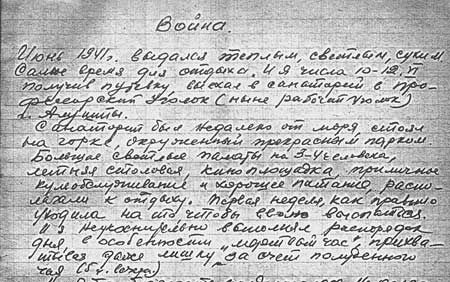 Война.
Июнь 1941г. выдался теплым, светлым, сухим.
Самое время для отдыха. И я числа 10-12,
получив путевку, выехал в санаторий в про-
фессорский Уголок (ныне рабочий уголок)
г. Алушты.
Санаторий был недалеко от моря, стоял
на горке, окруженный прекрасным парком.
Большие светлые палаты на 3-4 человека,
летняя столовая, киноплощадка, приличное
культобслуживание и хорошее питание, распо-
лагали к отдыху. Первая неделя, как правило
уходила на то чтобы выспаться.
Я неукоснительно выполнял распорядок
дня, в особенности "мертвый час", прихва-
тывая даже лишку, за счет полуденного
чая (5 г. сахара)